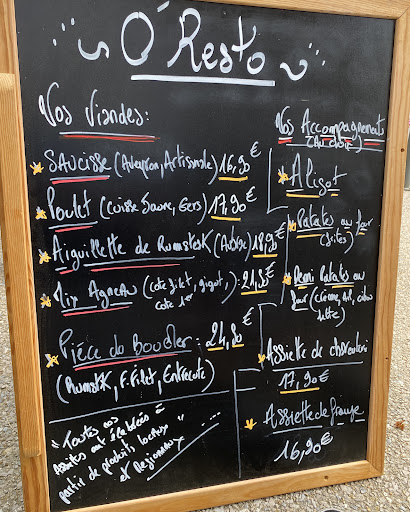 O'Resto
Vos Viandes:
Saucisse (Aveyron, Artisanale) 16,90€
Poulet (Cuisse Jaune, Gers) 17,90€
Aiguillette de Rumsteck (Aubrac) 18,90€
Mix Agneau (cote filet, gigot, cote 1er): 21,90€
Pièce du Boucher: 24,90€
(Rumstek, F.Filet, Entrecote)
"Toutes nos
assiettes sont élaborées à
partir de produits locaux
et Régionaux
Vos Accompagnements
(Au choix)
Aligot
Patates au four
(frites)
Demi Patates au
four (creme,
Assiette de charcuterie
17,90€
Assiette de fromage
16,90€